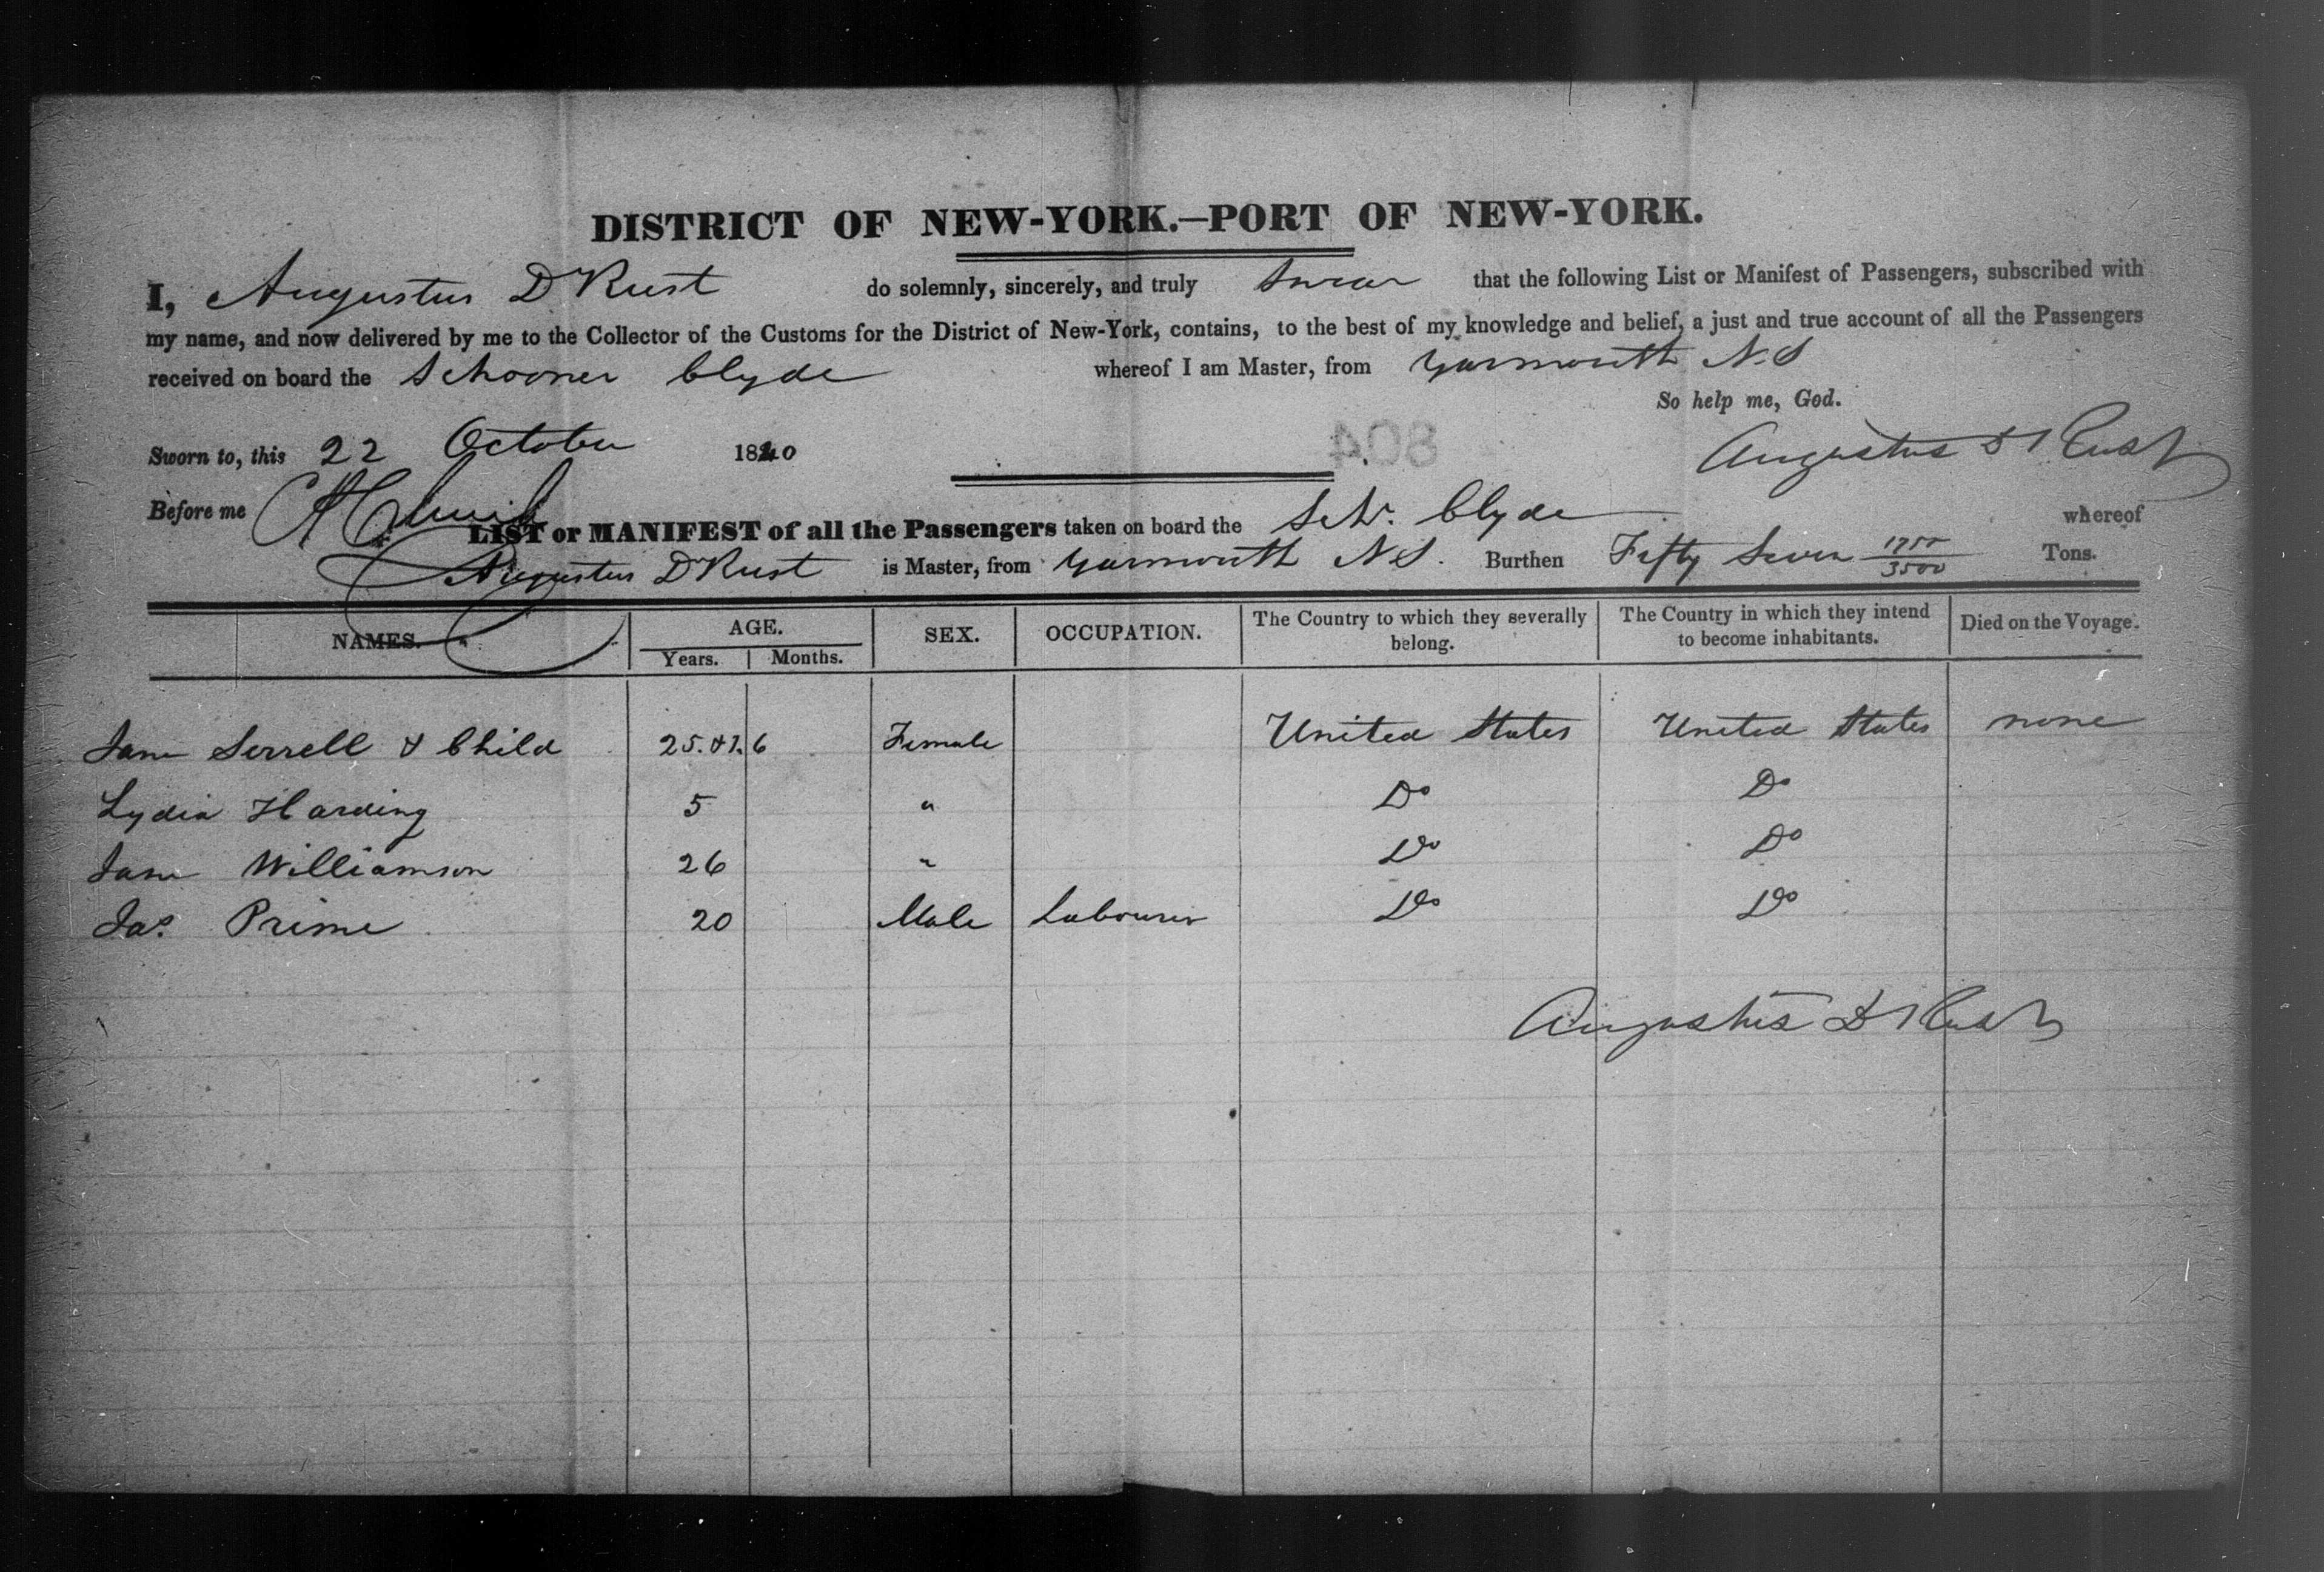 DISTRICT OF NEW-YORK.—PORT OF NEW-YORK.
I, Augustus D Rust do solemnly, sincerely, and truly Swear that the following List or Manifest of Passengers, subscribed with
my name, and now delivered by me to the Collector of the Customs for the District of New-York, contains, to the best of my knowledge and belief, a just and true account of all the Passengers
received on board the Schooner Clyde whereof I am Master, from Yarmouth N.S
So help me, God.
Sworn to, this 22 October 1840 Augustus D Rust
804
Before me
LIST or MANIFEST of all the Passengers taken on board the Schr. Clyde whereof
Augustus D Rust is Master, from Yarmouth N.S. Burthen Fifty Seven 1750/3500 Tons.
NAMES. AGE. SEX. OCCUPATION. The Country to which they severally belong. The Country in which they intend to become inhabitants. Died on the Voyage.
Years. Months.
Jane Serrell & Child 25. & 1. 6 Female United States United States none
Lydia Harding 5 " Do Do
Jane Williamson 26 " Do Do
Jas. Prime 20 Male Labourer Do Do
Augustus D Rust